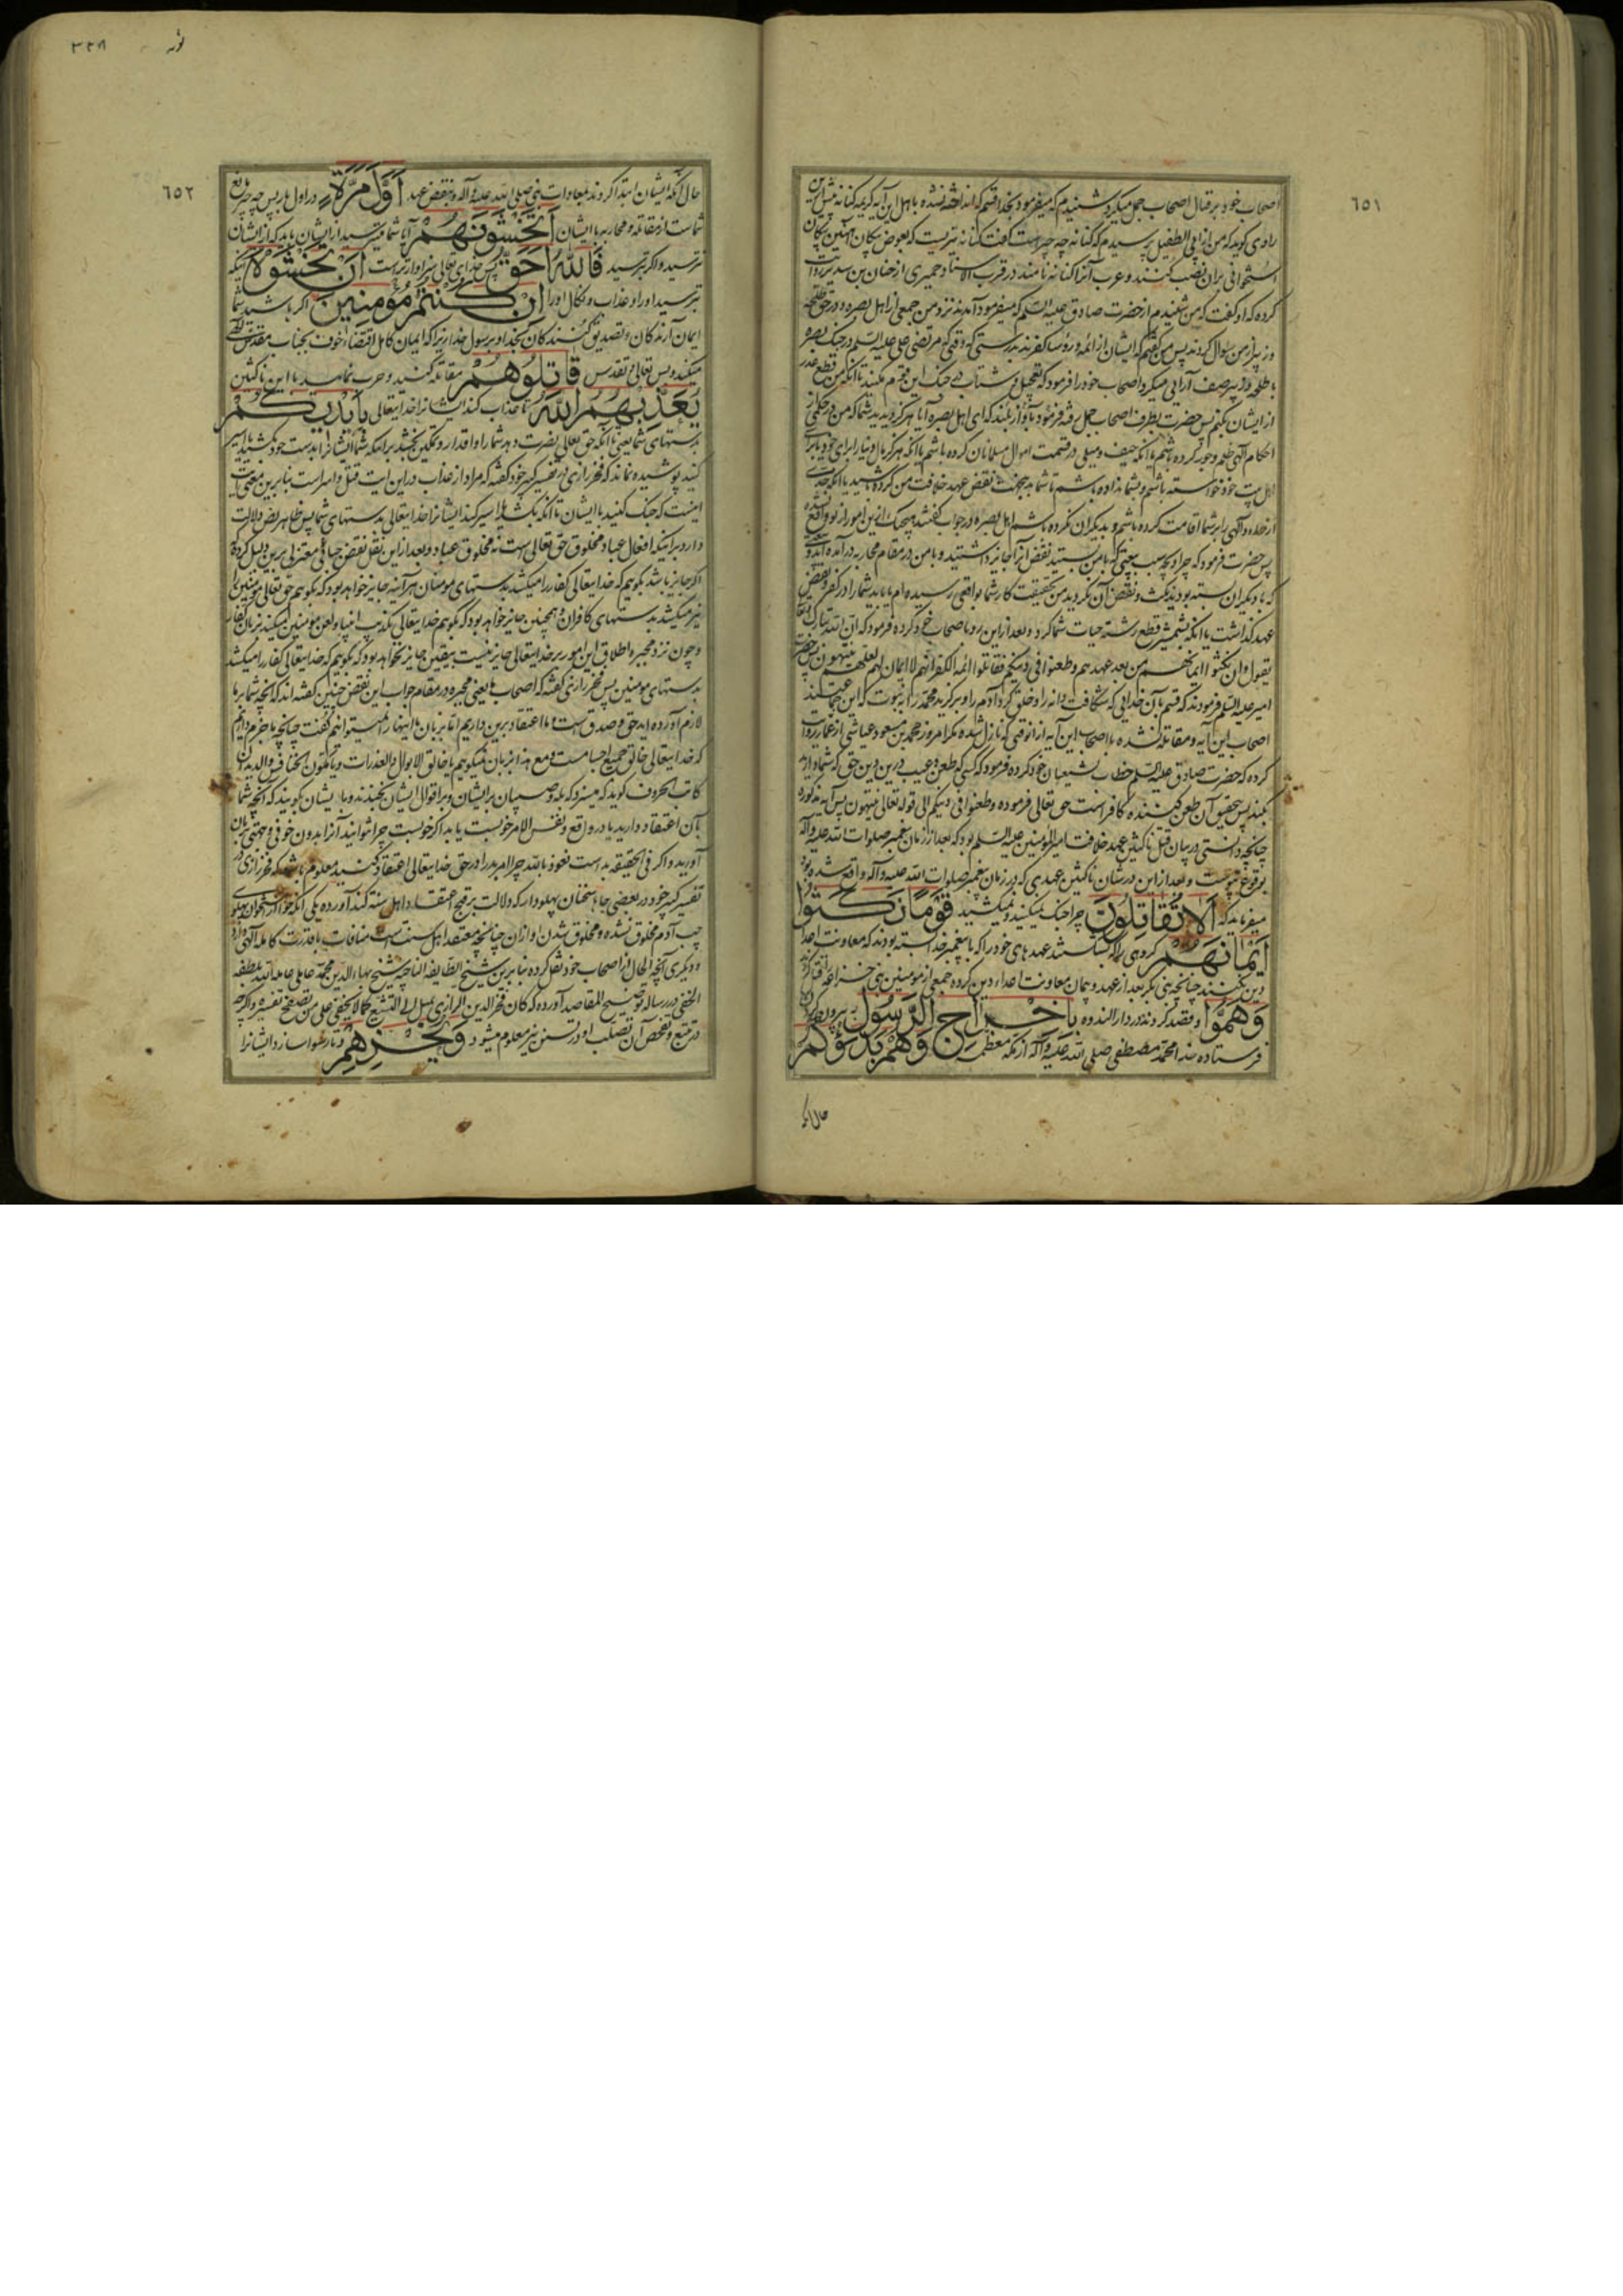 ٦٥١
اصحاب خود بر قتال اصحاب جمل میکرد شنیدم که میفرمود بخدا قسم که انداخته نشده باهل این آیه کریمه کنانه پیش ازین
راوی کوید که من از ابی الطفیل پرسیدم که کنانه چه چیز است گفت کنانه تیریست که بعوض پیکان آهنین پیکان
استخوانی بران نصب کنند و عرب آنرا کنانه نامند در قرب الاسناد حمیری از حنان بن سدیر روایت
کرده که او گفت که من شنیدم از حضرت صادق علیه السلم که میفرمود آمدند نزد من جمعی از اهل بصره و در حق طلحه
و زبیر از من سؤال کردند پس من گفتم که ایشان از ائمه و رؤسا کفرند بدرستی که وقتی که مرتضی علی علیه السلم در جنک بصره
با طلحه و زبیر صف آرایی میکرد اصحاب خود را فرمود که تعجیل و شتاب در جنک این قوم مکنید تا آنکه من قطع عذر
از ایشان بکنم پس حضرت بطرف اصحاب جمل رفته فرمود بآواز بلند که ای اهل بصره آیا هرکز دیدید شما که من در حکمی از
احکام آلهی ظلم و جور کرده باشم یا آنکه حیف و میلی در قسمت اموال مسلمانان کرده باشم یا آنکه هرکز مال دنیا را برای خود یا برای
اهل بیت خود خواسته باشم و بشما نداده باشم تا شما بجهت نقض عهد خلافت من کرده باشید یا آنکه حدی
از حدود آلهی را بر شما اقامت کرده باشم و بدیکران نکرده باشم اهل بصره در جواب گفتند هیچیک ازین امور از تو واقع نشده
پس حضرت فرمود که چرا و بچه سبب بیعتی که با من بستید نقض آنرا جایز داشتید و با من در مقام محاربه در آمده اید و بیعتی
که با دیکران بسته بودید نکث و نقض آن نکردید من بحقیقت کار شما بواقعی رسیده ام یا باید شما را در کفر و نقض
عهد کذاشت یا آنکه بشمشیر قطع رشته حیات شما کرد و بعد ازین رو باصحاب خود کرده فرمود که ان الله تبارک و تعالی
یقول وان نکثوا ایمانهم من بعد عهدهم وطعنوا فی دینکم فقاتلوا ائمة الکفر انهم لا ایمان لهم لعلهم ینتهون پس حضرت
امیر علیه السلم فرمودند که قسم بآن خدایی که شکافت دانه را و خلق کرد آدم را و برکزید محمد را به نبوت که این جماعت
اصحاب این آیه و مقاتله نشده با اصحاب این آیه از انوقتی که نازل شده مکر امروز محمد بن مسعود عیاشی از عمار روایت
کرده که حضرت صادق علیه السلم خطاب بشیعیان خود کرده فرمود که کسی که طعن و عیب درین دین حق که شما دارید
بکند پس بتحقیق آن طعن کننده کافر است حق تعالی فرموده وطعنوا فی دینکم الی قوله تعالی ینتهون پس آیه مذکوره
چنانچه دانستی در بیان قتل ناکثین عهد خلافت امیر المؤمنین علیه السلم بود که بعد از زمان پیغمبر صلوات الله علیه وآله
بوقوع پیوست و بعد ازین در شان ناکثین عهدی که در زمان پیغمبر صلوات الله علیه وآله واقع شده بود
میفرماید که أَلَا تُقَاتِلُونَ چرا جنک نمیکنید و نمیکشید قَوْمًا نَكَثُوا
أَيْمَانَهُمْ کروهی را که شکستند عهدهای خود را که با پیغمبر خدا بسته بودند که معاونت اعدا
دین نکنند چنانچه بنی بکر بعد از عهد و پیمان معاونت اعداء دین کرده جمعی از مؤمنین بنی خزاعه را قتل کردند
وَهَمُّوا و قصد کردند در دار الندوه بِإِخْرَاجِ الرَّسُولِ به بیرون کردن
فرستاده خدا محمد مصطفی صلی الله علیه وآله از مکه معظمه وَهُمْ بَدَءُوكُمْ
حال آنکه
توبه
۳۳۸
٦٥٢
حال آنکه ایشان ابتدا کردند بمعادات نبی صلی الله علیه وآله و نقض عهد أَوَّلَ مَرَّةٍ در اول بار پس چه چیز مانع
شماست از مقاتله و محاربه با ایشان أَتَخْشَوْنَهُمْ آیا شما میترسید از ایشان باید که از ایشان
نترسید و اکر بترسید فَاللَّهُ أَحَقُّ پس خدای تعالی سزاوارتر است أَنْ تَخْشَوْهُ باینکه
بترسید او را و عذاب و نکال او را إِنْ كُنْتُمْ مُؤْمِنِينَ اکر باشید شما
ایمان آرندکان و تصدیق کنندکان بخدا و برسول خدا زیرا که ایمان کامل اقتضاء خوف بجناب مقدس الهی
میکند و بس تعالی و تقدس قَاتِلُوهُمْ مقاتله کنید و حرب نمائید با این ناکثین
يُعَذِّبْهُمُ اللَّهُ تا عذاب کند ایشانرا خدایتعالی بِأَيْدِيكُمْ
بدستهای شما یعنی تا آنکه حق تعالی نصرت دهد شما را و اقدار و تمکین بخشد بر اینکه شما ایشانرا بدست خود بکشید یا اسیر
کنید پوشیده نماند که فخر رازی در تفسیر کبیر خود کفته که مراد از عذاب در این ایت قتل و اسر است بنابرین معنی آیت
اینست که جنک کنید با ایشان تا آنکه بکشد یا اسیر کند ایشانرا خدایتعالی بدستهای شما پس ظاهر نص دلالت
دارد بر اینکه افعال عباد مخلوق حق تعالی است نه مخلوق عباد و بعد ازاین نقل نقض جبائی معتزلی برین دلیل کرده که
اکر جایز باشد بکوییم که خدایتعالی کفار را میکشد بدستهای مؤمنان هر آینه جایز خواهد بود که بکوییم حق تعالی مؤمنین را
نیز میکشد بدستهای کافران و همچنین جایز خواهد بود که بکوییم خدایتعالی تکذیب انبیا و لعن مؤمنین میکند بزبان کفار
و چون نزد مجبره اطلاق این امور بر خدایتعالی جایز نیست بیقین جایز نخواهد بود که بکوییم که خدایتعالی کفار را میکشد
بدستهای مؤمنین پس فخر رازی کفته که اصحاب ما یعنی مجبره در مقام جواب این نقض چنین کفته اند که آنچه شما بر ما
لازم آورده اید حق و صدق است و ما اعتقاد برین داریم اما بزبان ما اینها را نمیتوانیم کفت چنانچه ما جزم داریم
که خدایتعالی خالق جمیع اجسامست و مع هذا بزبان نمیکوییم یا خالق الابوال والعذرات و یا مکون الخنافس والدیدان
کاتب الحروف کوید که میسزد که بله و صبیان بر ایشان و بر اقوال ایشان بخندند و با ایشان کویند که آنچه شما
بآن اعتقاد دارید یا در واقع و نفس الامر خوبست یا بد اکر خوبست چرا نتوانید آنرا بدون خوف و جهتی بزبان
آورید و اکر فی الحقیقه بد است نعوذ بالله چرا امر بد را در حق خدایتعالی اعتقاد کنید معلوم باشد که فخر رازی در
تفسیر کبیر خود در بعضی جاها سخنان پهلودار که دلالت بر قبح اعتقاد اهل سنه کند آورده یکی آنکه حوا از استخوان پهلوی
چپ آدم مخلوق نشده و مخلوق شدن او ازان چنانچه معتقد اهل سنت است منافات با قدرت کامله آلهی دارد
و دیکری آنچه الحال از اصحاب خود نقل کرده بنابرین شیخ الطایفه الناجیه شیخ بهاء الدین محمد عاملی عامله الله بلطفه
الخفی در رساله توضیح المقاصد آورده که کان فخر الدین الرازی یمیل الی التشیع کما لا یخفی علی من تصفح تفسیره و اکرچه
در تتبع و تفحص آن تصلب او در تسنن نیز معلوم میشود وَيُخْزِهِمْ و تا رسوا سازد ایشانرا